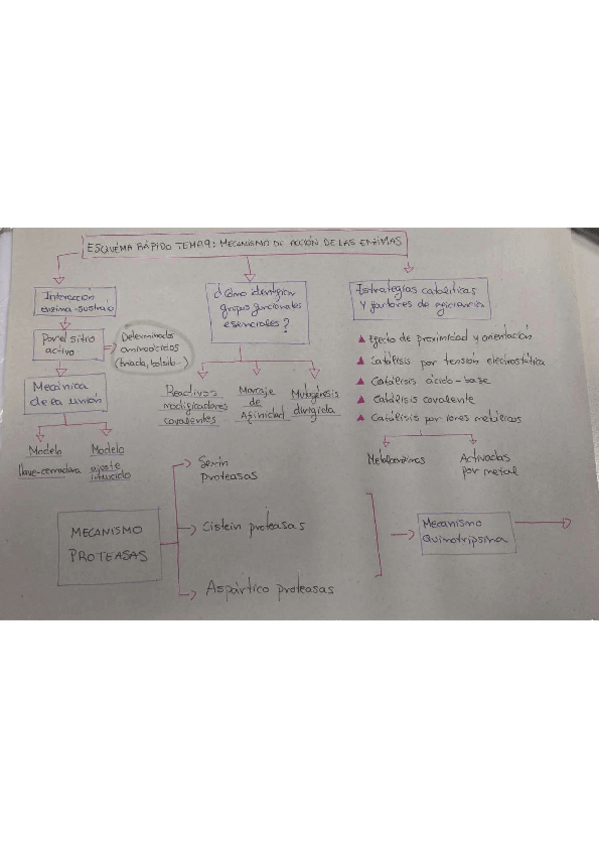 ESQUEMA RÁPIDO TEMA 9: MECANISMO DE ACCIÓN DE LAS ENZIMAS
Interacción
enzima-sustrato
Por el sitio
activo
Determinados
aminoácidos
(triada, bolsillo...)
Mecánica
de la unión
Modelo
llave-cerradura
Modelo
ajuste
inducido
¿Cómo identificar
grupos funcionales
esenciales?
Reactivos
modificadores
covalentes
Marcaje
de
Afinidad
Mutagénesis
dirigida
Estrategias catalíticas
y factores de eficiencia
Efecto de proximidad y orientación
Catálisis por tensión electrostática
Catálisis ácido-base
Catálisis covalente
Catálisis por iones metálicos
Metaloenzimas
Activadas
por metal
MECANISMO
PROTEASAS
Serin
proteasas
Cistein proteasas
Aspártico proteasas
Mecanismo
Quimotripsina